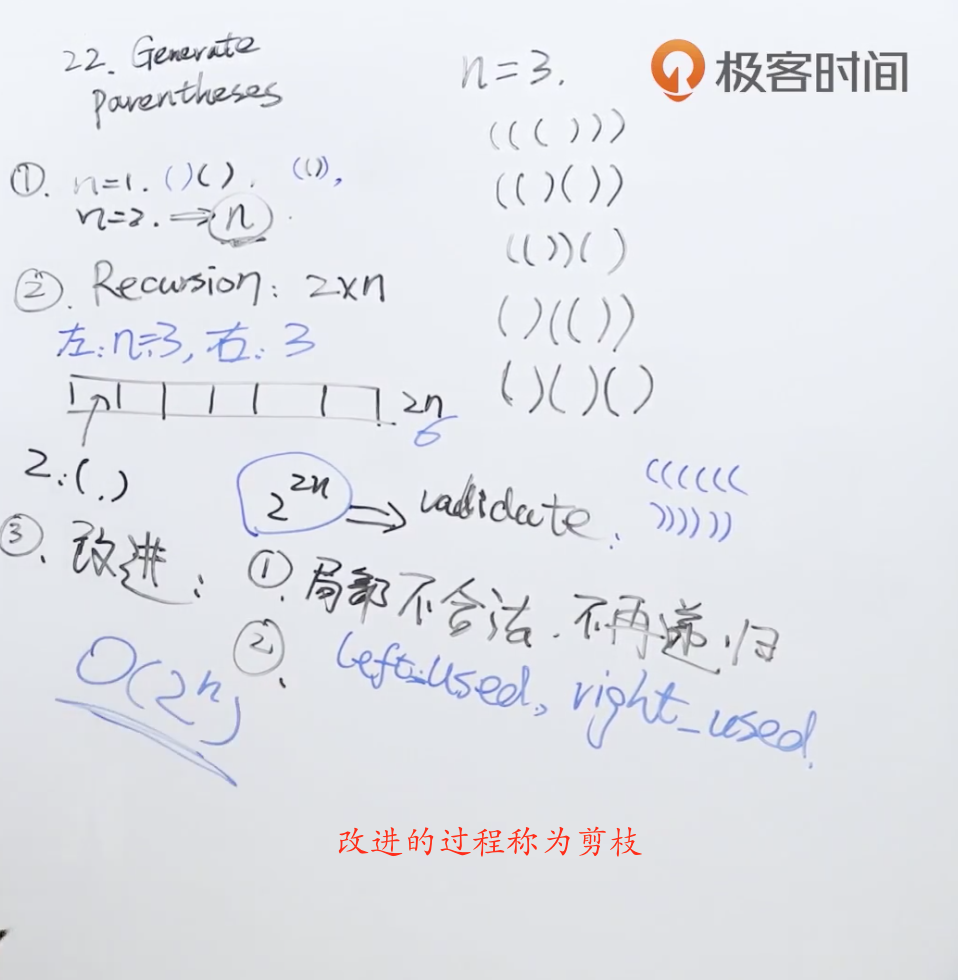 22. Generate
Parentheses
n=3.
极客时间
((()))
(()())
(())()
()(())
()()()
①. n=1. ()(). (()),
n=2. ⇒ n.
②. Recursion: 2×n
左: n=3, 右: 3
2n
6
2:(.)
2^2n ⇒ validate.:
((((((
))))))
③、改进: ①.局部不合法.不再递归
②、 left_used, right_used.
O(2^n)
改进的过程称为剪枝